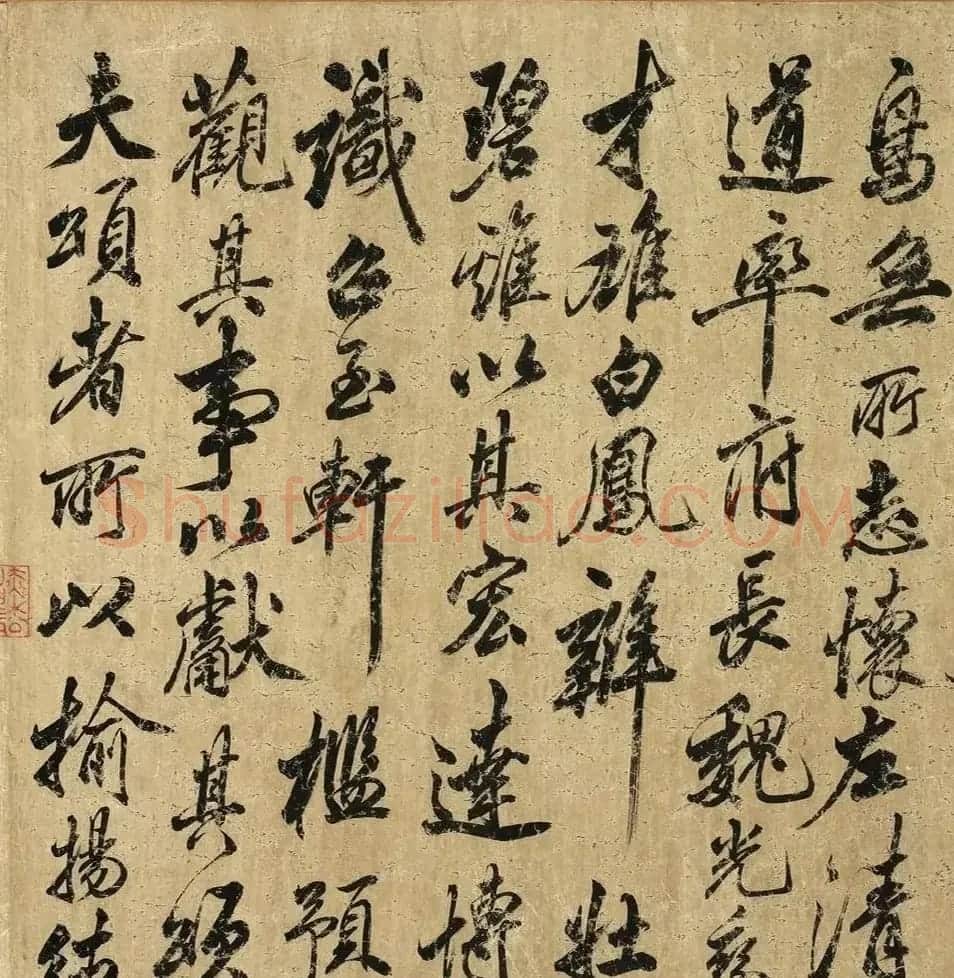 鳥無所志懷左清
道率府長魏光乘
才雄白鳳辯壯
碧雞以其宏達博
識召至軒檻預
觀其事以獻其頌
夫頌者所以揄揚
Shufaziliao.COM